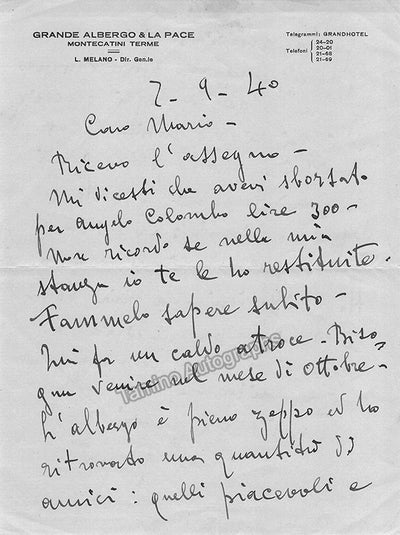 GRANDE ALBERGO & LA PACE
MONTECATINI TERME
L. MELANO - Dir. Gen.le
Telegrammi: GRANDHOTEL
Telefoni
24-20
20-01
21-68
21-69
7-9-40
Caro Mario -
Ricevo l'assegno -
Mi dicesti che avevi sborsato
per Angelo Colombo lire 300 -
Non ricordo se nella mia
stanza io te le ho restituite.
Fammelo sapere subito -
Qui fa un caldo atroce - Biso
gna venire nel mese di Ottobre -
L'albergo è pieno zeppo ed ho
ritrovato una quantità di
amici: quelli piacevoli e
Tamino Autographs